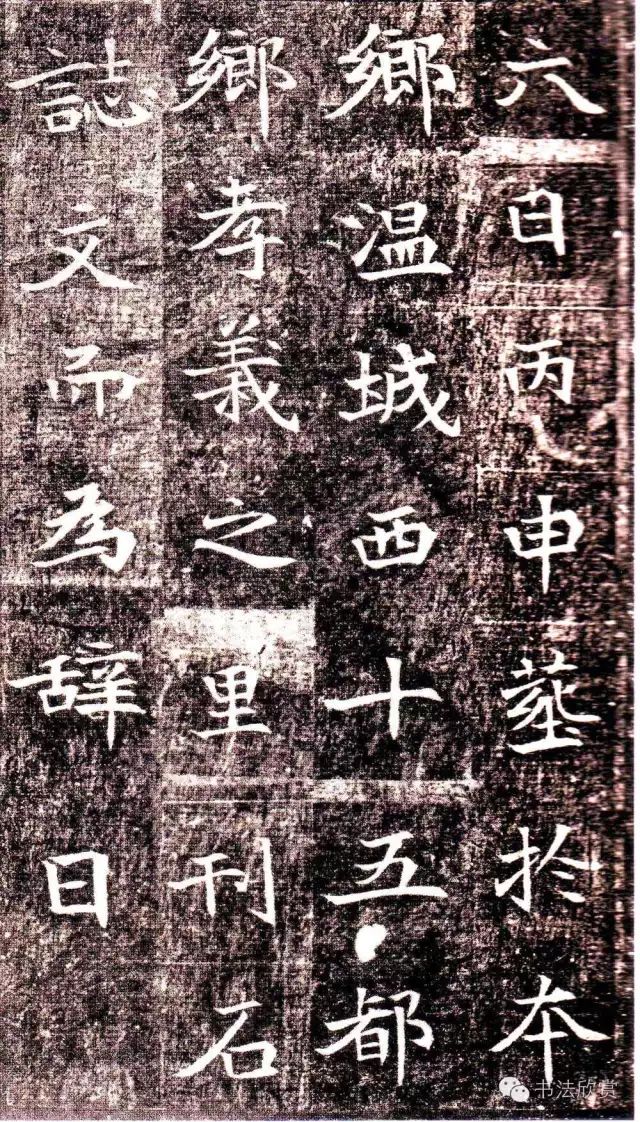 六日丙申塟扵本
鄉温城西十五都
鄉孝義之里刊石
誌文而為辞曰
书法欣赏